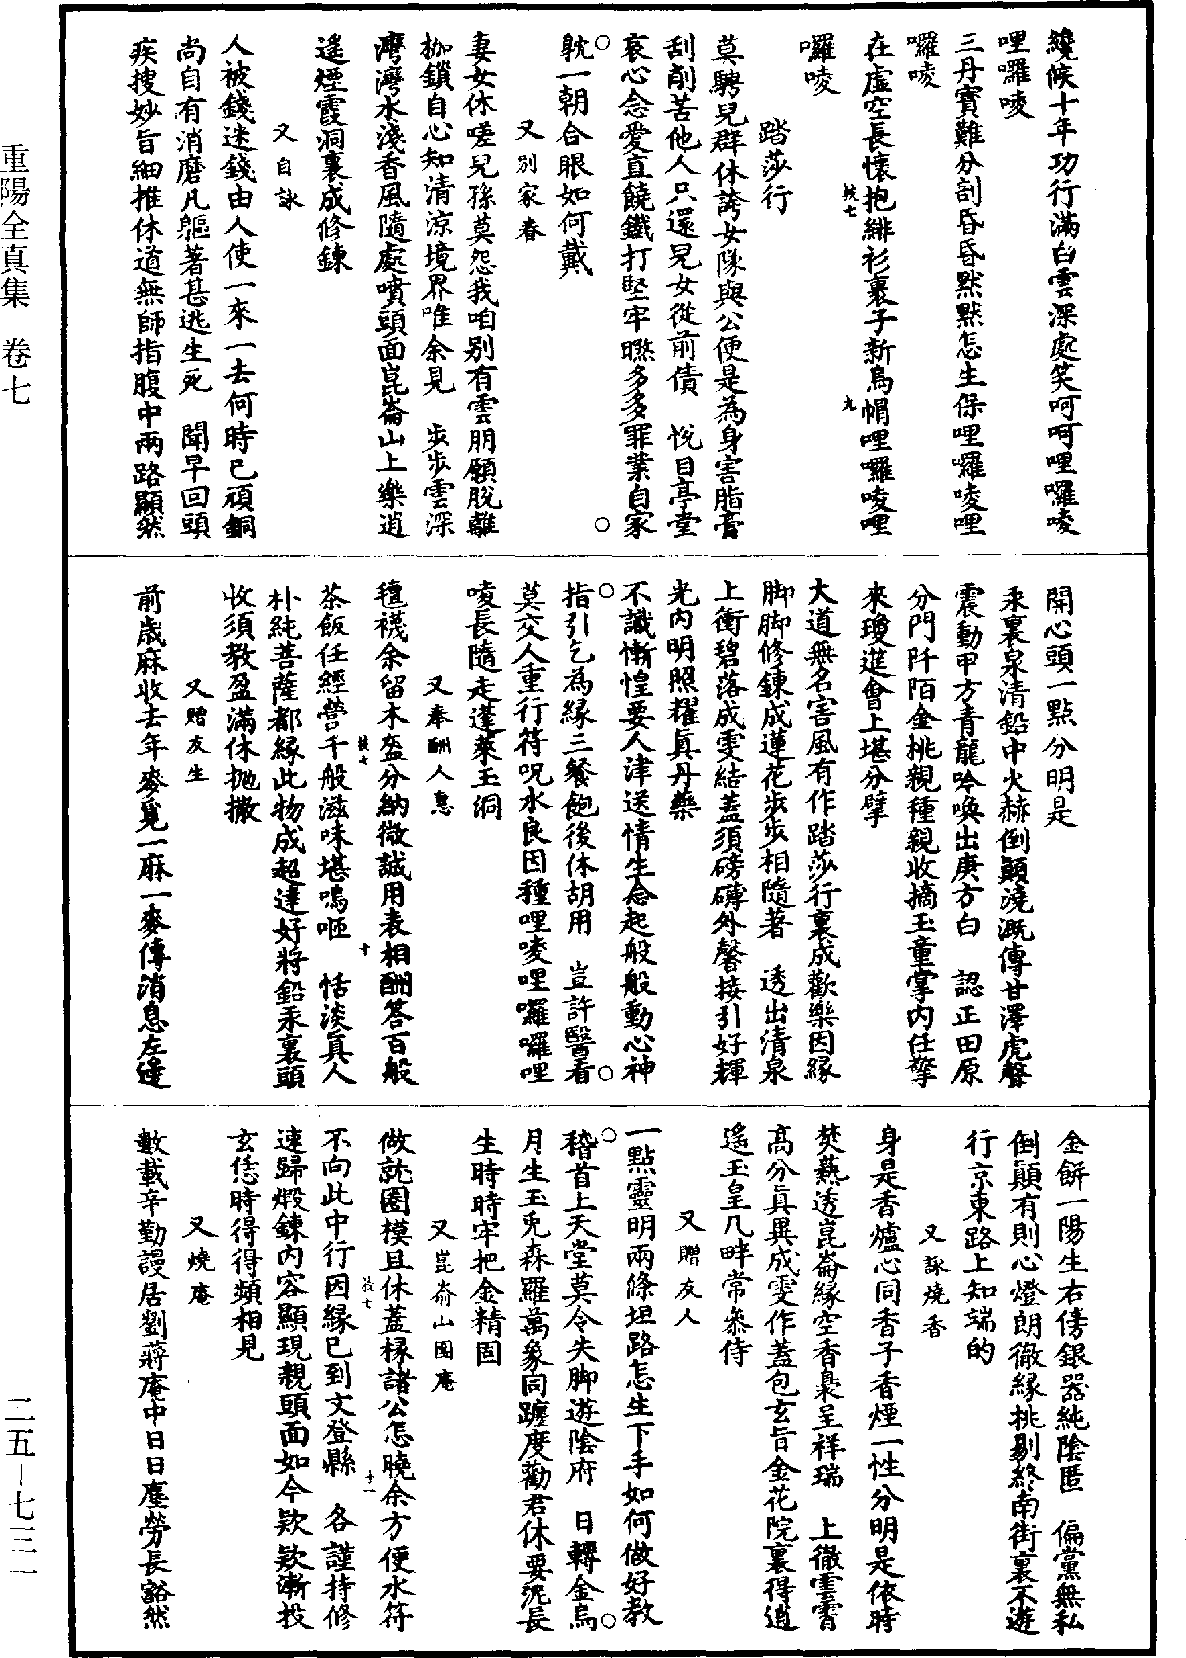 纔候十年功行滿白雲深處笑呵呵哩囉唛
哩囉唛
三丹寶難分剖昏昏默默怎生保哩囉唛哩
囉唛
在虛空長懷抱緋衫裹子新烏帽哩囉唛哩
囉唛
踏莎行
莫騁兒群休誇女隊與公便是為身害脂膏
刮削苦他人只還兒女從前債　悅目亭堂
哀心念愛直饒鐵打堅牢曒多多罪業自家
躭一朝合眼如何戴
又別家眷
妻女休嗟兒孫莫怨我咱別有雲朋願脫離
枷鎖自心知清涼境界唯余見　步步雲深
灣灣水淺香風隨處噴頭面崑崙山上樂逍
遙煙霞洞裏成修鍊
又自詠
人被錢迷錢由人使一來一去何時已頑銅
尚自有消磨凡軀著甚逃生死　聞早回頭
疾搜妙旨細推休道無師指腹中兩路顯然
開心頭一點分明是
汞裏泉清鉛中火赫倒顛澆溉傳甘澤虎聲
震動甲方青龍吟喚出庚方白　認正田原
分門阡陌金桃親種親收摘玉童掌內任擎
來瓊進會上堪分擘
大道無名害風有作踏莎行裏成歡樂因緣
脚脚修鍊成蓮花步步相隨著　透出清泉
上衝碧落成雯結蓋須磅礴外馨接引好輝
光內明照耀真丹藥
不識慚惶要人津送情生念起般般動心神
指引乞為緣三餐飽後休胡用　豈許醫看
莫交人重行符呪水良因種哩唛哩囉囉哩
唛長隨走蓬萊玉洞
又奉酬人惠
氊襪余留木盔分納微誠用表相酬答百般
茶飯任經營千般滋味堪嗚咂　恬淡真人
朴純菩薩都緣此物成超達好將鉛汞裏頭
收須教盈滿休抛撒
又贈友生
前歲麻收去年麥覓一麻一麥傳消息左邊
金餅一陽生右傍銀器純陰匿　偏黨無私
倒顛有則心燈朗徹緣挑剔終南街裏不遊
行京東路上知端的
又詠燒香
身是香爐心同香子香煙一性分明是依時
焚爇透崑崙緣空香裊呈祥瑞　上徹雲霄
高分真異成雯作蓋包玄旨金花院裏得逍
遙玉皇几畔常參侍
又贈友人
一點靈明兩條坦路怎生下手如何做好教
稽首上天堂莫令失脚遊陰府　日轉金烏
月生玉兔森羅萬象同躔度勸君休要泥長
生時時牢把金精固
又崑嵛山園庵
做就圈模且休蓋椽諸公怎曉余方便水符
不向此中行因緣已到文登縣　各謹持修
速歸煅鍊內容顯現親頭面如今欵欵漸投
玄恁時得得頻相見
又燒庵
數載辛勤謾居劉蔣庵中日日塵勞長豁然
重陽全真集　卷七
二五—七三一